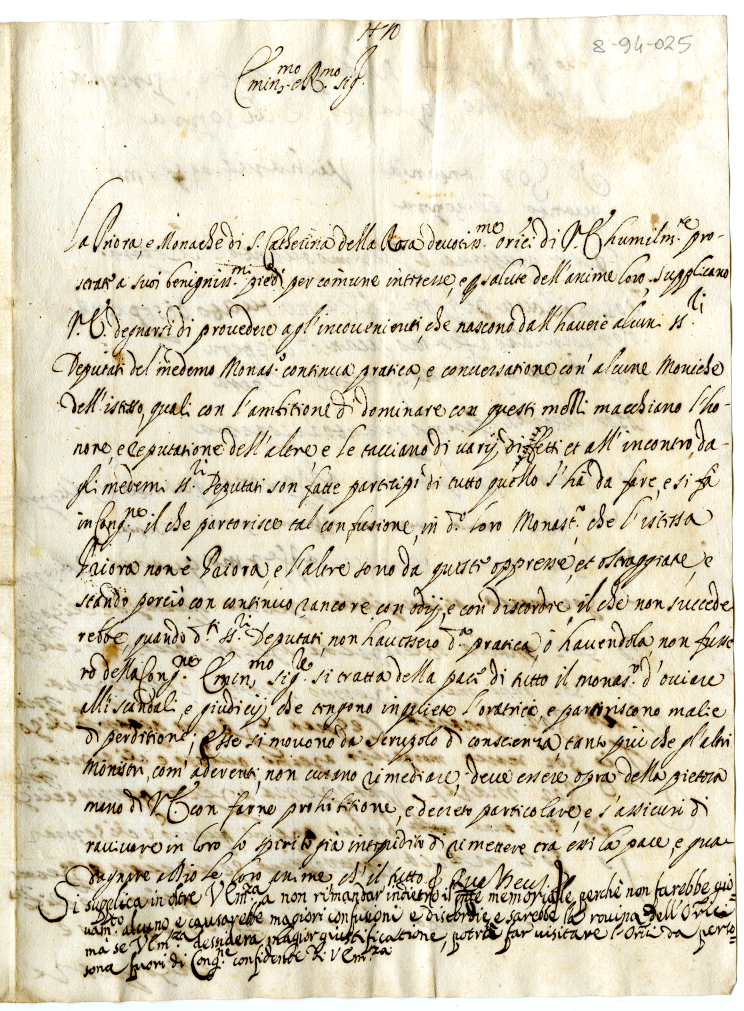 8-94-025
Emin.mo e R.mo Sig.r
La Priora, e Monache di S. Catherina della Rosa devotiss.me oric.i di V. E. humilm.te pro-
strate a suoi benigniss.mi piedi per comune interesse, e p salute dell'anime loro, supplicano
V. E. degnarsi di provedere agl'inconvenienti, che nascono dall'havere alcuni SS.ri
Deputati del medemo Monas.o continua pratica, e conversatione con' alcune Moniche
dell'istesso, quali con l'ambitione di dominare con questi modi macchiano l'ho-
nore, e reputatione dell'altre e le tacciano di varij difetti et all'incontro, da-
gli medemi SS.ri Deputati son fatte partecipi di tutto quello s'hà da fare, e si fà
in Cong.ne, il che partorisce tal confusione, in d.o loro Monast.o, che l'istessa
Priora non è Priora e l'altre sono da queste oppresse, et oltraggiate, e
stando perciò con continuo rancore con odij, e con discordie il che non succede
rebbe quando d.ti SS.ri Deputati, non havessero d.a pratica, ò havendola, non fusse
ro della Cong.ne Emin.mo Sig.re si tratta della pace di tutto il monas.o d'oviare
alli scandali, e giudicij, che tengono inquiete l'oratrici, e partoriscono malie
di perditione; esse si movono da scrupolo di conscienza, tanto più che gl'altri
Ministri, com' aderenti, non curano rimediare, deve essere opra della pietosa
mano di V. E. con farne prohibitione, e decreto particolare, e s'assicuri di
ravivare in loro lo spirito già intepidito di rimettere tra essi la pace, e gua-
dagnare a Dio le loro anime ch'il tutto &. Quae Deus
Si supplica in oltre V Em.za a non rimandar indietro il memoriale, perchè non farebbe gio-
vam.to alcuno e causarebbe magiori confusioni e discordie e sarebbe la rovina dell'Oric.i
mà se V Em.za desidera magior giustificatione, potria far visitare l'Oric.i da perso
sona fuori di Cong.ne confidente di V Em.za